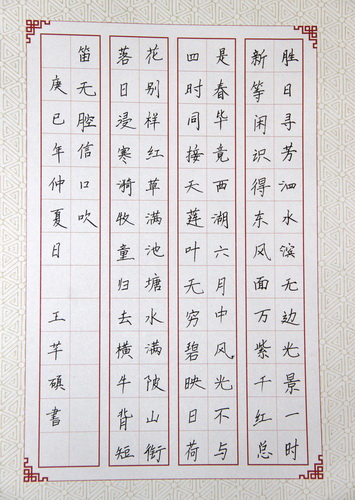 胜日寻芳泗水滨无边光景一时
新等闲识得东风面万紫千红总
是春毕竟西湖六月中风光不与
四时同接天莲叶无穷碧映日荷
花别样红草满池塘水满陂山衔
落日浸寒漪牧童归去横牛背短
笛无腔信口吹
庚已年仲夏日 王芊碩書